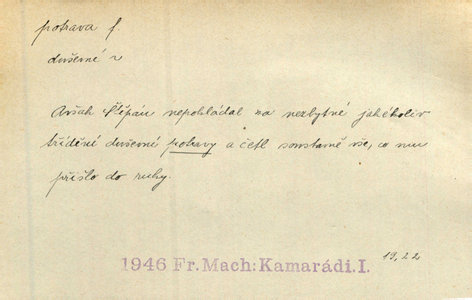 potrava f.
duševné ~
Avšak Štěpán nepokládal za nezbytné jakékoliv
třídění duševné potravy a četl soustavně vše, co mu
přišlo do ruky.
1946 Fr. Mach: Kamarádi. I.
19, 22